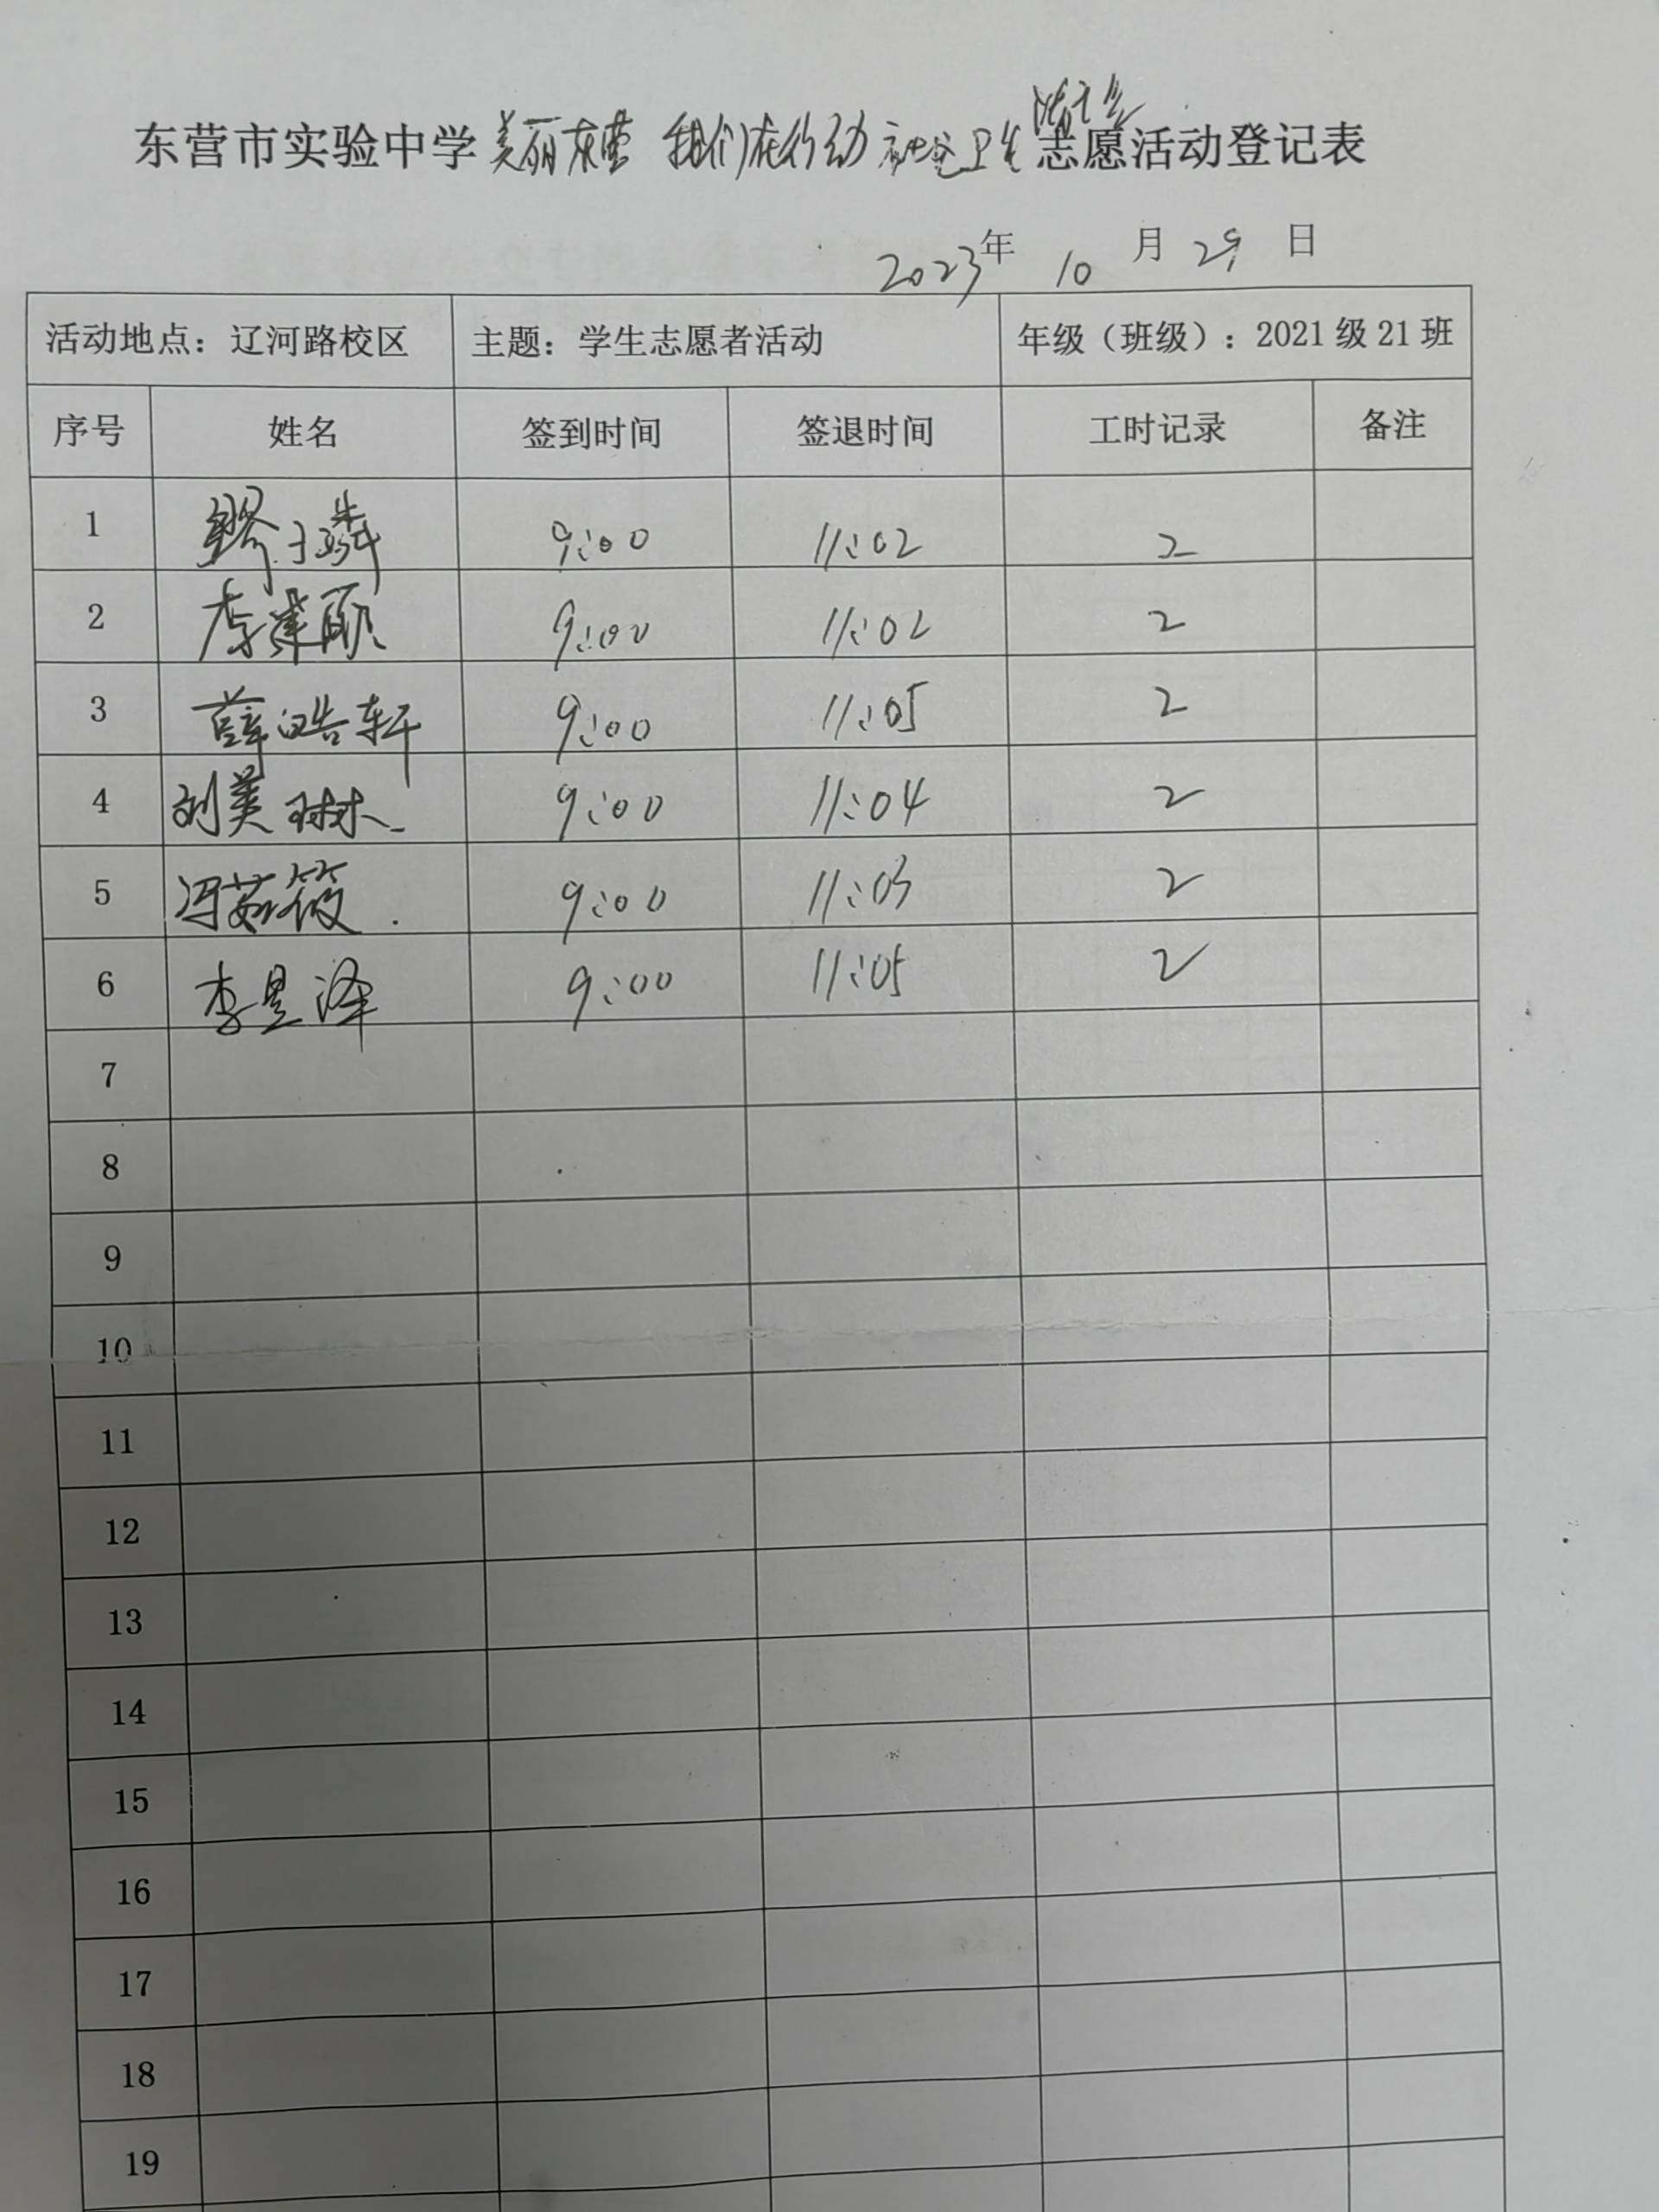 东营市实验中学美丽东营 我们在行动 社区卫生志愿活动登记表
2023年 10 月 29 日
活动地点：辽河路校区 主题：学生志愿者活动 年级（班级）：2021 级 21 班
序号 姓名 签到时间 签退时间 工时记录 备注
1 9:00 11:02 2
2 9:00 11:02 2
3 薛皓轩 9:00 11:05 2
4 刘美琳 9:00 11:04 2
5 冯茹筱 9:00 11:03 2
6 李昱泽 9:00 11:05 2
7
8
9
10
11
12
13
14
15
16
17
18
19